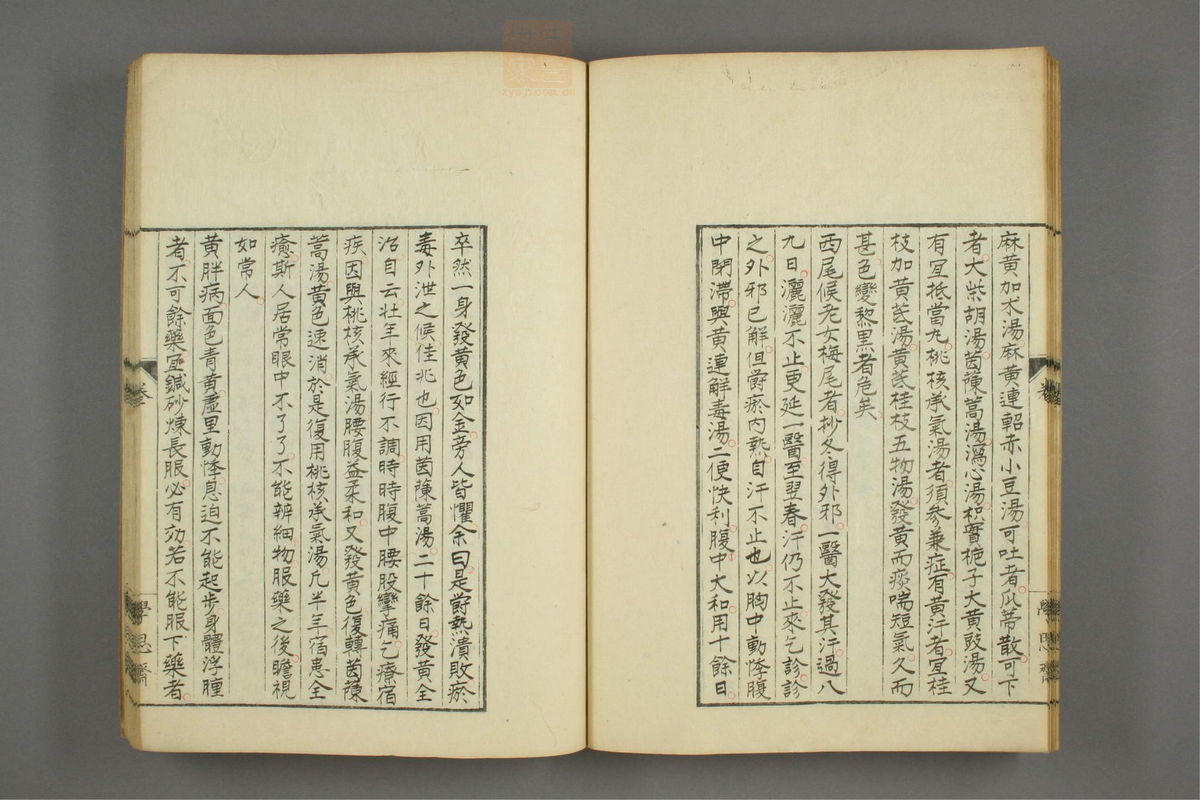 麻黄加朮湯麻黄連軺赤小豆湯可吐者瓜蒂散可下
者大柴胡湯茵蔯蒿湯瀉心湯枳實梔子大黄豉湯又
有宜抵當丸桃核承氣湯者須參兼症有黄汗者宜桂
枝加黄茋湯黄茋桂枝五物湯發黄而痰喘短氣久而
甚色變黎黒者危矣
西尾候老女梅尾者抄冬得外邪一醫大發其汗過八
九日灑灑不止更延一醫至翌春汗仍不止來乞診診
之外邪已解但欝瘀内熱自汗不止也以胸中動悸腹
中閉滯與黄連解毒湯二便快利腹中大和用十餘日
卒然一身發黄色如金旁人皆懼余曰是欝熱潰敗瘀
毒外泄之候佳兆也因用茵蔯蒿湯二十餘日發黄全
治自云壮年來經行不調時時腹中腰股攣痛乞療宿
疾因與桃核承氣湯腰腹益柔和又發黄色復轉茵蔯
蒿湯黄色速消於是復用桃核承氣湯凡半年宿患全
癒斯人居常眼中不了了不能辨細物服藥之後瞻視
如常人
黄胖病面色青黄虚里動悸息迫不能起步身體浮腫
者不可餘藥宜鍼砂煉長服必有効若不能服下藥者
學思齋